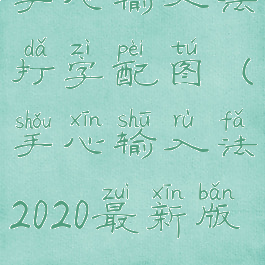 手心输入法
dǎ zì pèi tú
打字配图（
shǒu xīn shū rù fǎ
手心输入法
zuì xīn bǎn
2020最新版